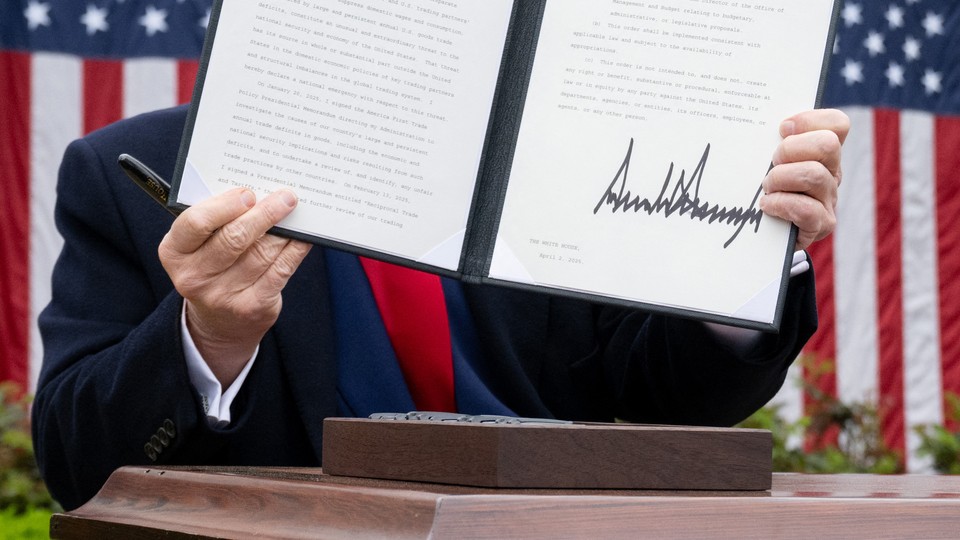 and U.S. trading partners'
suppress domestic wages and consumption,
by large and persistent annual U.S. goods trade
deficits, constitute an unusual and extraordinary threat to the
national security and economy of the United States. That threat
has its source in whole or substantial part outside the United
States in the domestic economic policies of key trading partners
and structural imbalances in the global trading system. I
hereby declare a national emergency with respect to this threat.
On January 20, 2025, I signed the America First Trade
Policy Presidential Memorandum directing my Administration to
investigate the causes of our country's large and persistent
annual trade deficits in goods, including the economic and
national security implications and risks resulting from such
deficits, and to undertake a review of, and identify, any unfair
trade practices by other countries. On February 13, 2025,
I signed a Presidential Memorandum entitled "Reciprocal Trade
and Tariffs," that directed further review of our trading
director of the Office of
Management and Budget relating to budgetary,
administrative, or legislative proposals.
(b) This order shall be implemented consistent with
applicable law and subject to the availability of
appropriations.
(c) This order is not intended to, and does not, create
any right or benefit, substantive or procedural, enforceable at
law or in equity by any party against the United States, its
departments, agencies, or entities, its officers, employees, or
agents, or any other person.
THE WHITE HOUSE,
April 2, 2025.